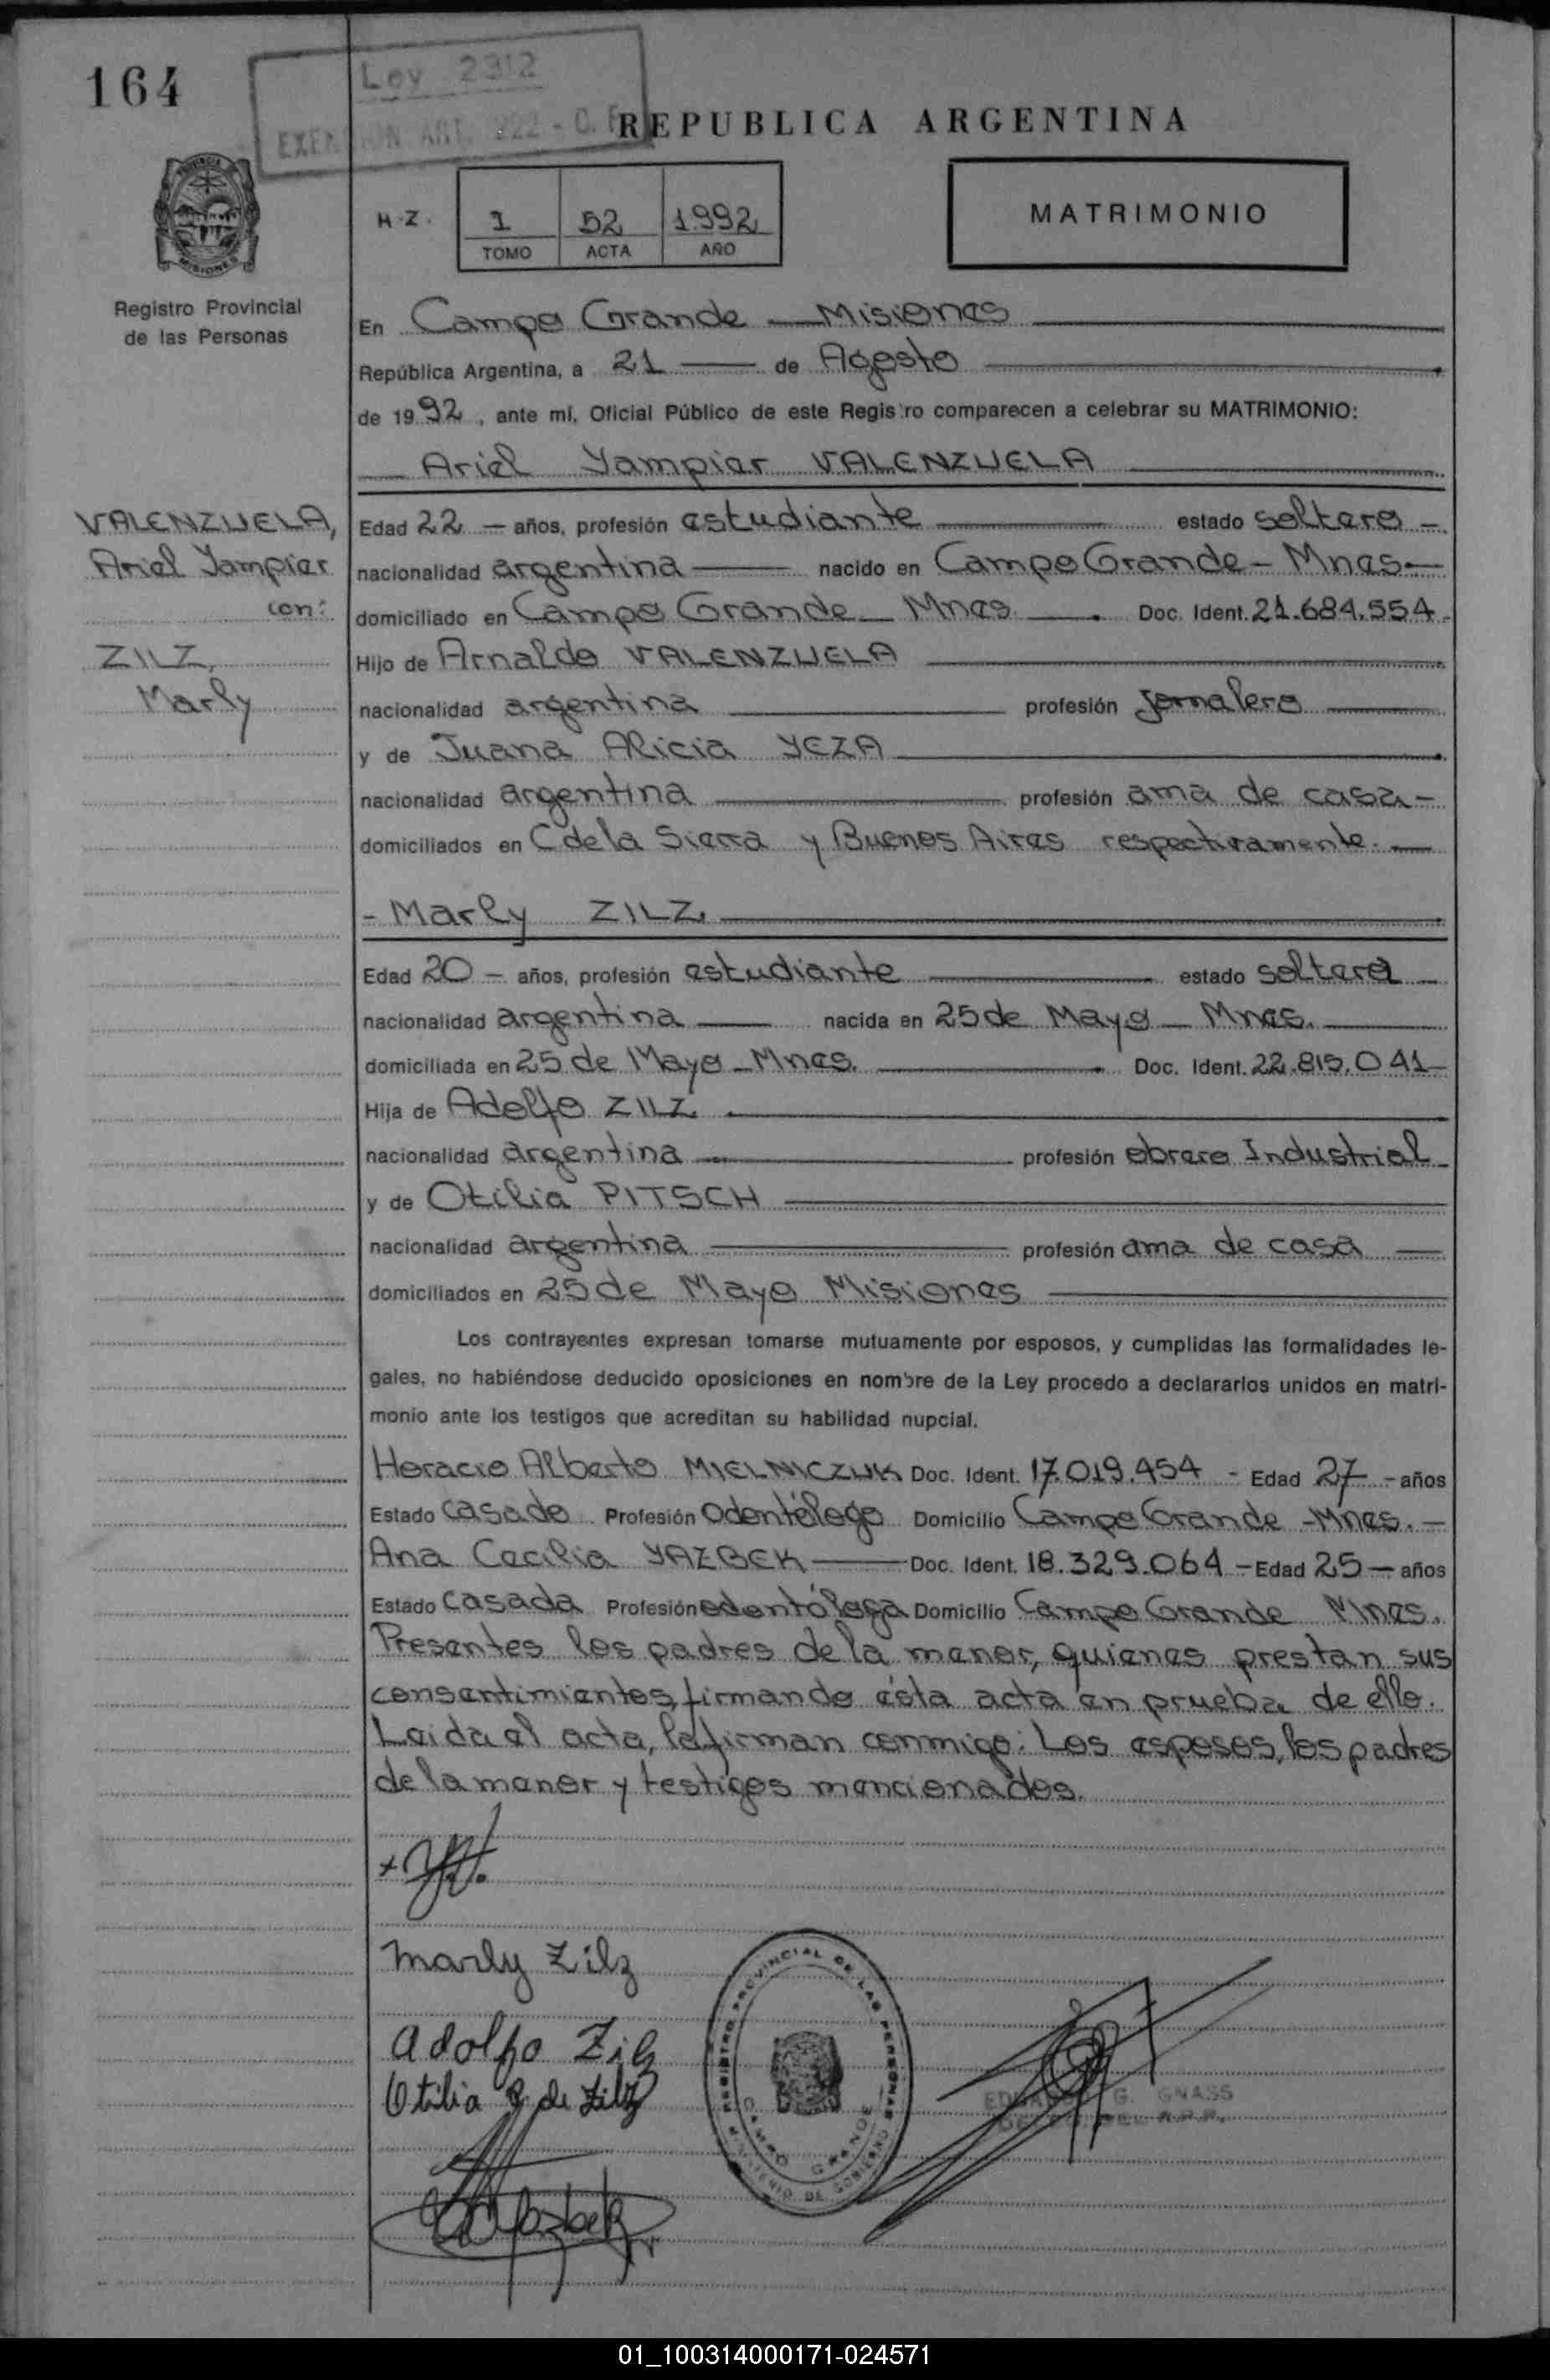 164
Ley 2312
EXENCION ART. 222 - C.F.
REPUBLICA ARGENTINA
H.Z.
1 52 1.992
TOMO ACTA AÑO
MATRIMONIO
PROVINCIA
MISIONES
Registro Provincial
de las Personas
En Campo Grande - Misiones
República Argentina, a 21 de Agosto
de 1992, ante mí, Oficial Público de este Registro comparecen a celebrar su MATRIMONIO:
Ariel Yampier VALENZUELA
VALENZUELA,
Ariel Yampier
con:
ZILZ,
Marly
Edad 22 - años, profesión estudiante estado soltero -
nacionalidad argentina nacido en Campo Grande - Mnes -
domiciliado en Campo Grande - Mnes. Doc. Ident. 21.684.554.
Hijo de Arnaldo VALENZUELA
nacionalidad argentina profesión jornalero
y de Juana Alicia YEZA
nacionalidad argentina profesión ama de casa -
domiciliados en C de la Sierra y Buenos Aires respectivamente. -
- Marly ZILZ.
Edad 20 - años, profesión estudiante estado soltera -
nacionalidad argentina nacida en 25 de Mayo - Mnes.
domiciliada en 25 de Mayo - Mnes. Doc. Ident. 22.815.041 -
Hija de Adolfo ZILZ
nacionalidad argentina profesión obrero Industrial
y de Otilia PITSCH
nacionalidad argentina profesión ama de casa
domiciliados en 25 de Mayo Misiones
Los contrayentes expresan tomarse mutuamente por esposos, y cumplidas las formalidades le-
gales, no habiéndose deducido oposiciones en nombre de la Ley procedo a declararlos unidos en matri-
monio ante los testigos que acreditan su habilidad nupcial.
Horacio Alberto MIELNICZUK Doc. Ident. 17.019.454 - Edad 27 - años
Estado casado Profesión Odontólogo Domicilio Campo Grande - Mnes. -
Ana Cecilia YAZBEK Doc. Ident. 18.329.064 - Edad 25 - años
Estado casada Profesión odontóloga Domicilio Campo Grande Mnes.
Presentes los padres de la menor, quienes prestan sus
consentimientos, firmando ésta acta en prueba de ello.
Leida el acta, la firman conmigo: Los esposos, los padres
de la menor y testigos mencionados.
Marly Zilz
Adolfo Zilz
Otilia P. de Zilz
REGISTRO PROVINCIAL DE LAS PERSONAS
CAMPO GRANDE
MINISTERIO DE GOBIERNO
G. GNASS
DEL R.P.P.
Yazbek
01_100314000171-024571